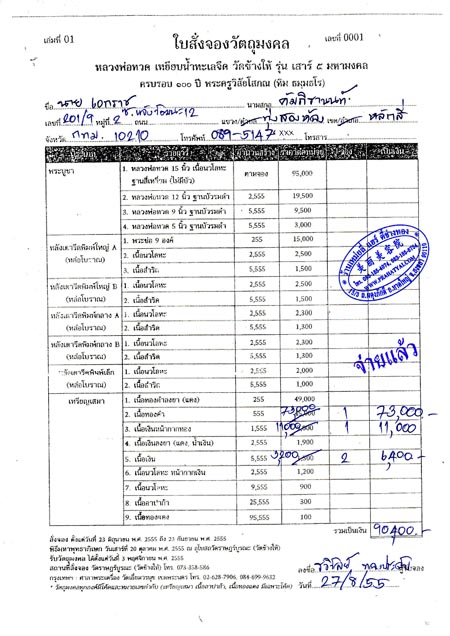 เล่มที่ 01
ใบสั่งจองวัตถุมงคล
เลขที่ 0001
หลวงพ่อทวด เหยียบน้ำทะเลจืด วัดช้างให้ รุ่น เสาร์ ๕ มหามงคล
ครบรอบ ๑๐๐ ปี พระครูวิสัยโสภณ (ทิม ธมฺมธโร)
ชื่อ นาย เอกราช นามสกุล
เลขที่ 201/9 หมู่ที่ 2 ถนน แขวง/ตำบล ทุ่งสองห้อง เขต/อำเภอ หลักสี่
จังหวัด กทม. 10210 โทรศัพท์ 089-5147 xxx โทรสาร
จำนวนสร้าง จำนวนเงิน
พระบูชา 1. หลวงพ่อทวด 15 นิ้ว เนื้อนวโลหะ ฐานสี่เหลี่ยม (ไม่มีบัว) ตามจอง 95,000
2. หลวงพ่อทวด 12 นิ้ว ฐานบัวรมดำ 2,555 19,500
3. หลวงพ่อทวด 9 นิ้ว ฐานบัวรมดำ 5,555 9,500
4. หลวงพ่อทวด 5 นิ้ว ฐานบัวรมดำ 5,555 3,000
หลังเตารีดพิมพ์ใหญ่ A (หล่อโบราณ) 1. พระช่อ 9 องค์ 255 15,000
2. เนื้อนวโลหะ 2,555 2,500
3. เนื้อสำริด 5,555 1,500
หลังเตารีดพิมพ์ใหญ่ B (หล่อโบราณ) 1. เนื้อนวโลหะ 2,555 2,500
2. เนื้อสำริด 5,555 1,500
หลังเตารีดพิมพ์กลาง A (หล่อโบราณ) 1. เนื้อนวโลหะ 2,555 2,300
2. เนื้อสำริด 5,555 1,300
หลังเตารีดพิมพ์กลาง B (หล่อโบราณ) 1. เนื้อนวโลหะ 2,555 2,300
2. เนื้อสำริด 5,555 1,300
หลังเตารีดพิมพ์เล็ก (หล่อโบราณ) 1. เนื้อนวโลหะ 2,555 2,000
2. เนื้อสำริด 5,555 1,000
จ่ายแล้ว
เหรียญเสมา 1. เนื้อทองคำลงยา (แดง) 255 49,000
2. เนื้อทองคำ 555 73,000 1 73,000-
3. เนื้อเงินหน้ากากทอง 1,555 11,000 1 11,000
4. เนื้อเงินลงยา (แดง, น้ำเงิน) 2,555 1,900
5. เนื้อเงิน 5,555 3,200 2 6,400-
6. เนื้อนวโลหะ หน้ากากเงิน 2,555 1,200
7. เนื้อนวโลหะ 9,555 900
8. เนื้ออาปาก้า 25,555 300
9. เนื้อทองแดง 95,555 100
รวมเป็นเงิน 90,400.-
สั่งจอง ตั้งแต่วันที่ 23 มิถุนายน พ.ศ. 2555 ถึง 23 กันยายน พ.ศ. 2555
พิธีมหาพุทธาภิเษก วันเสาร์ที่ 20 ตุลาคม พ.ศ. 2555 ณ อุโบสถวัดราษฎร์บูรณะ (วัดช้างให้)
รับวัตถุมงคล ได้ตั้งแต่วันที่ 3 พฤศจิกายน พ.ศ. 2555
สถานที่สั่งจอง วัดราษฎร์บูรณะ (วัดช้างให้) โทร. 073-358-586
โทร. 02-628-7906, 084-699-9632
ลงชื่อ ผู้จอง
วันที่ 27/8/55